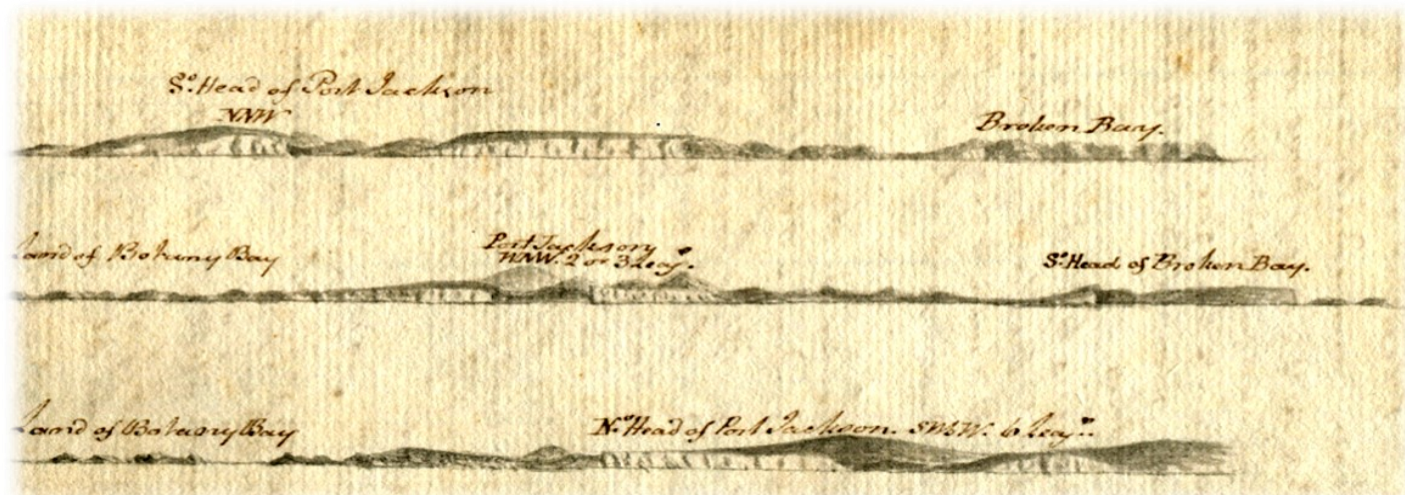 So. Head of Port Jackson
NNW
Broken Bay.
Land of Botany Bay
Port Jackson
WNW. 2 or 3 Leags.
So. Head of Broken Bay.
Land of Botany Bay
No. Head of Port Jackson. SWbW. 6 Leags.